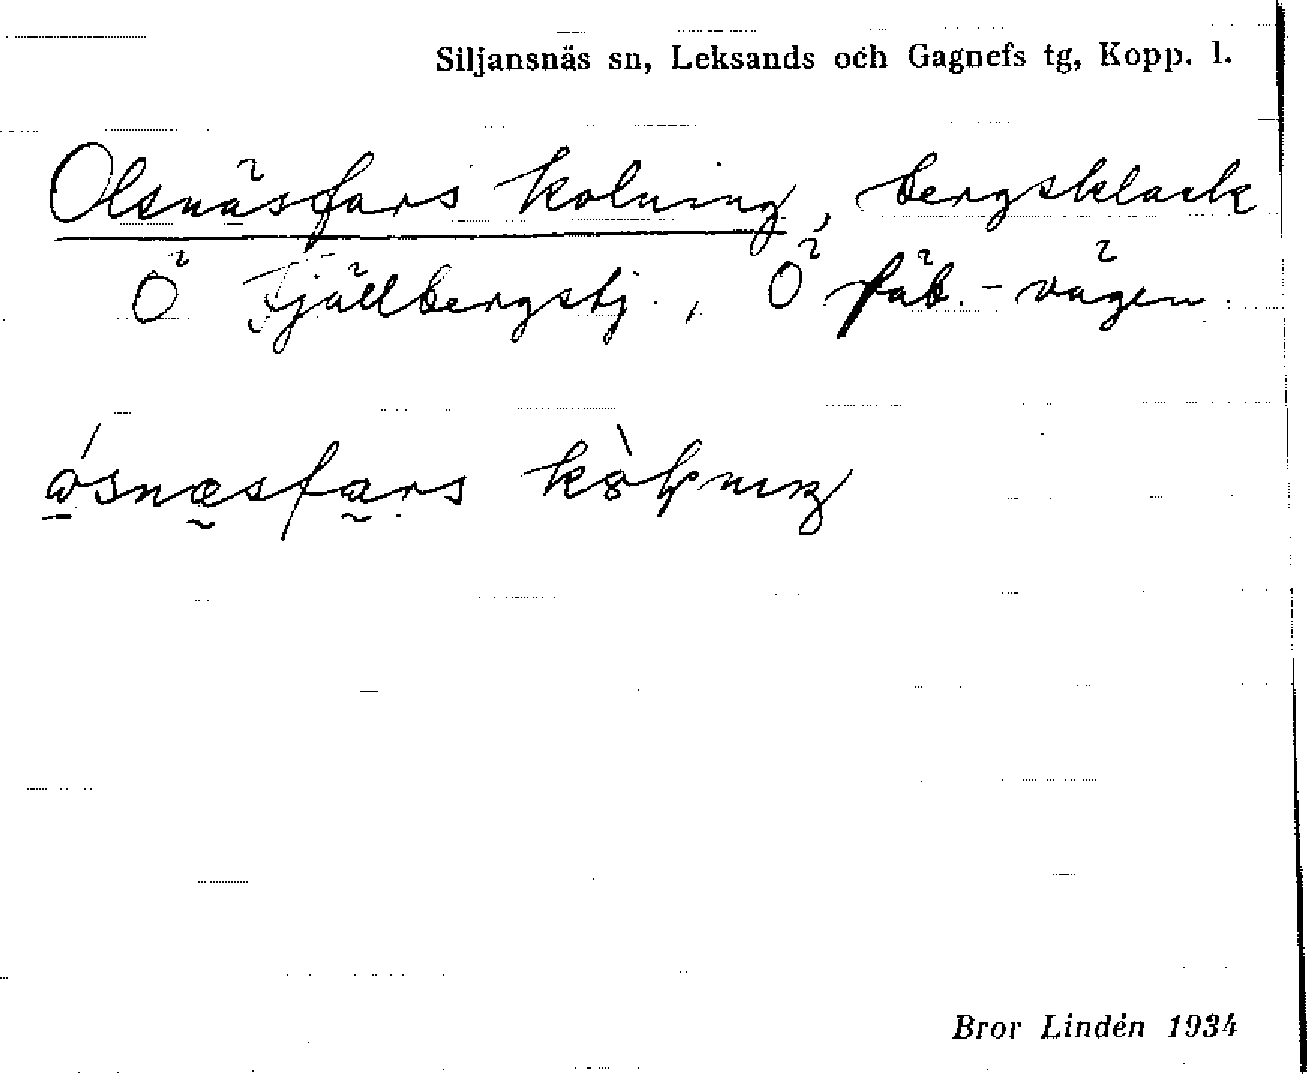 Siljansnäs sn, Leksands och Gagnefs tg, Kopp. l.
Olsnäsfars kolning, bergsklack
Ö Fjällbergstj., Ö fäb.-vägen.
kòḷnıŋ
Bror Lindén 1934